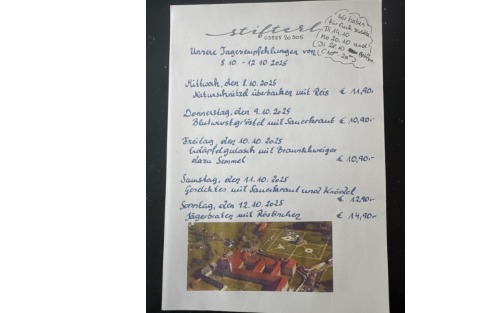 stifterl
Wir haben
für Euch
Di 14.10
Mo 20.10 und
Di 21.10
Unsere Tagesempfehlungen von
8.10 - 12.10 2025
Mittwoch, den 8.10.2025
Naturschnitzel überbacken mit Reis € 11,90.-
Donnerstag, den 9.10.2025
Blutwurstgröstel mit Sauerkraut € 10,90.-
Freitag, den 10.10.2025
Erdäpfelgulasch mit Braunschweiger
dazu Semmel € 10,90.-
Samstag, den 11.10.2025
Geselchtes mit Sauerkraut und Knödel
€ 12,90.-
Sonntag, den 12.10.2025
Jägerbraten mit Röstinchen € 14,90.-